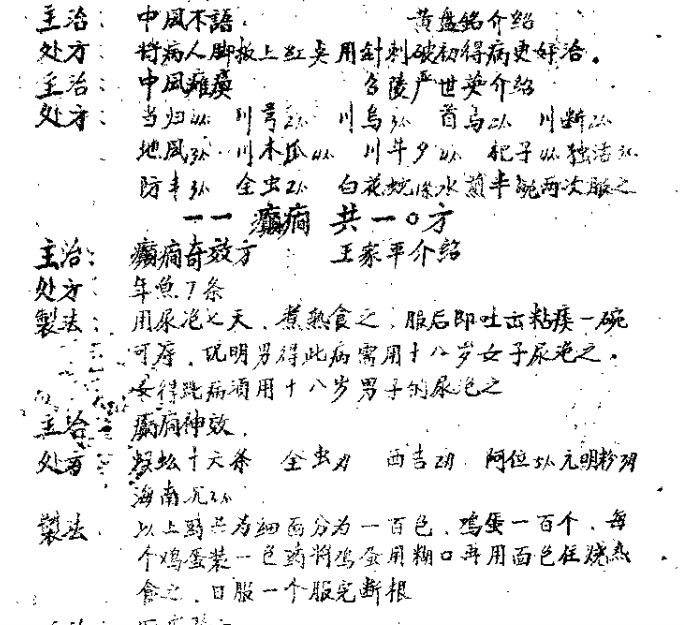 主治：中風不語 黄盘銘介绍
处方：将病人脚板上红点用針刺破初得病更好治。
主治：中風瘫痪 台陵严世英介绍
处方：当归 川芎 川烏 首烏 川断
地風 川木瓜 川牛夕 杞子 独活
防丰 全虫 白花蛇 條水煎半碗两次服之
一一 癫痫 共一〇方
主治：癫痫奇效方 王家平介绍
处方：年魚7条
製法：用尿泡七天、煮熟食之，服后即吐出粘痰一碗
可痊，说明男得此病需用十八岁女子尿泡之，
女得此病须用十八岁男子的尿泡之
主治 癫痫神效，
处方 蜈蚣十六条 全虫 西吉 阿位 元明粉
海南
製法 以上药共为细面分为一百包，鸡蛋一百个，每
个鸡蛋装一包药将鸡蛋用糊口再用面包住烧熟
食之，日服一个服完断根